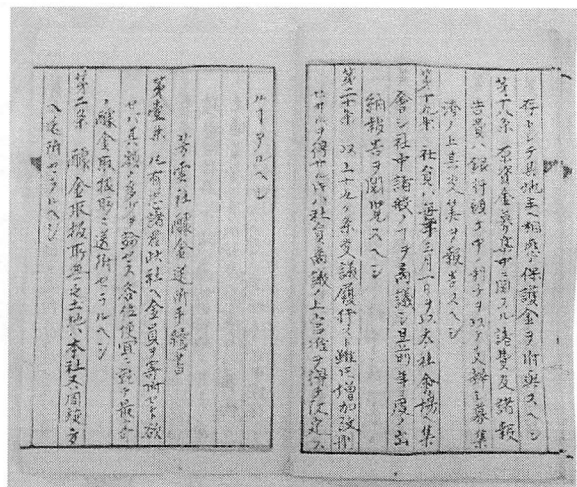 存トシテ其地主ヘ相應ノ保護金ヲ附与スヘシ
第十八条 原資金募集中ニ関スル諸費及諸報
告費ハ銀行預ケ中ノ利子ヲ以テ支辨シ募集
済ノ上其決算ヲ報告スヘシ
第十九条 社会ハ毎年三月一日ヲ以太社会場ヘ集
會シ社中諸般ノヿヲ商議シ且前年度ノ出
納報告ヲ閲覧スヘシ
第二十条 以上十九ケ条定議履行スト雖𪜈増加改刪
セサルヲ得サル片ハ社員商議ノ上官准ヲ得テ決定ス
ルヿアルヘシ
芳雲社醵金送附手續書
第壹条 凡有志諸君此社ヘ金員ヲ寄附セント欲
セハ其額ノ多少ヲ論セス各位便宜ニ就テ最寄
ノ醵金取扱所ニ送附セラルヘシ
第二条 醵金取扱所無之土地ハ本社又ハ間近キ方
ヘ送附セラルヘシ